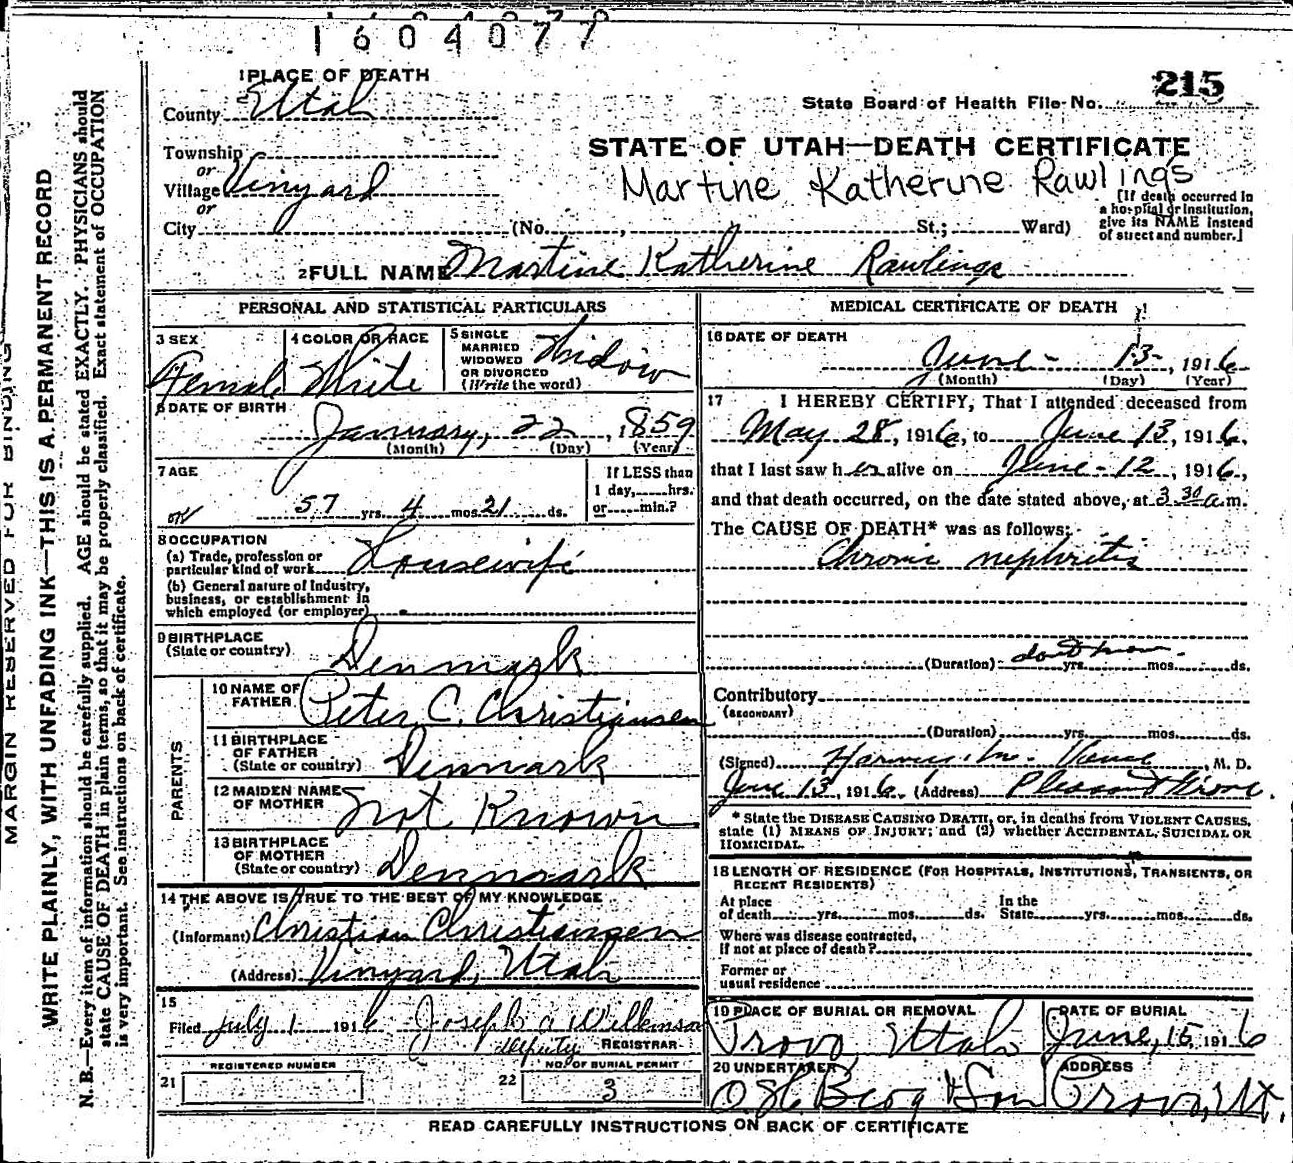 1604077
1 PLACE OF DEATH
215
County Utah
State Board of Health File No.
Township
STATE OF UTAH—DEATH CERTIFICATE
or
Village Vinyard
Martine Katherine Rawlings
or
City (No. , St.; Ward)
[If death occurred in a hospital or institution, give its NAME instead of street and number.]
2 FULL NAME Martine Katherine Rawlings
PERSONAL AND STATISTICAL PARTICULARS
3 SEX
Female
4 COLOR OR RACE
White
5 SINGLE
MARRIED
WIDOWED
OR DIVORCED
(Write the word)
Widow
6 DATE OF BIRTH
January, 22, 1859
(Month) (Day) (Year)
7 AGE
OK 57 yrs. 4 mos. 21 ds.
If LESS than
1 day,.....hrs.
or.....min.?
8 OCCUPATION
(a) Trade, profession or
particular kind of work Housewife
(b) General nature of Industry,
business, or establishment in
which employed (or employer)
9 BIRTHPLACE
(State or country)
Denmark
PARENTS
10 NAME OF
FATHER
Peter C. Christiansen
11 BIRTHPLACE
OF FATHER
(State or country)
Denmark
12 MAIDEN NAME
OF MOTHER
Not Known
13 BIRTHPLACE
OF MOTHER
(State or country)
Denmark
14 THE ABOVE IS TRUE TO THE BEST OF MY KNOWLEDGE
(Informant) Christian Christiansen
(Address) Vinyard, Utah
15
Filed July 1 1916 Joseph A Wilkinson
deputy REGISTRAR
REGISTERED NUMBER
21
NO. OF BURIAL PERMIT
22 3
MEDICAL CERTIFICATE OF DEATH
16 DATE OF DEATH
June 13, 1916
(Month) (Day) (Year)
17 I HEREBY CERTIFY, That I attended deceased from
May 28, 1916, to June 13, 1916,
that I last saw her alive on June-12, 1916,
and that death occurred, on the date stated above, at 3 30 a.m.
The CAUSE OF DEATH* was as follows:
Chronic nephritis
(Duration) dont know yrs. mos. ds.
Contributory
(SECONDARY)
(Duration) yrs. mos. ds.
(Signed) , M. D.
June 13, 1916. (Address) Pleasant Grove.
* State the DISEASE CAUSING DEATH, or, in deaths from VIOLENT CAUSES,
state (1) MEANS OF INJURY; and (2) whether ACCIDENTAL, SUICIDAL OR
HOMICIDAL.
18 LENGTH OF RESIDENCE (FOR HOSPITALS, INSTITUTIONS, TRANSIENTS, OR
RECENT RESIDENTS)
At place In the
of death yrs. mos. ds. State yrs. mos. ds.
Where was disease contracted,
if not at place of death?
Former or
usual residence
19 PLACE OF BURIAL OR REMOVAL
Provo, Utah
DATE OF BURIAL
June, 15, 1916
20 UNDERTAKER
Berg & Son
ADDRESS
Provo, Ut.
READ CAREFULLY INSTRUCTIONS ON BACK OF CERTIFICATE
MARGIN RESERVED FOR BINDING
WRITE PLAINLY, WITH UNFADING INK—THIS IS A PERMANENT RECORD
N. B.—Every item of information should be carefully supplied. AGE should be stated EXACTLY. PHYSICIANS should
state CAUSE OF DEATH in plain terms, so that it may be properly classified. Exact statement of OCCUPATION
is very important. See instructions on back of certificate.